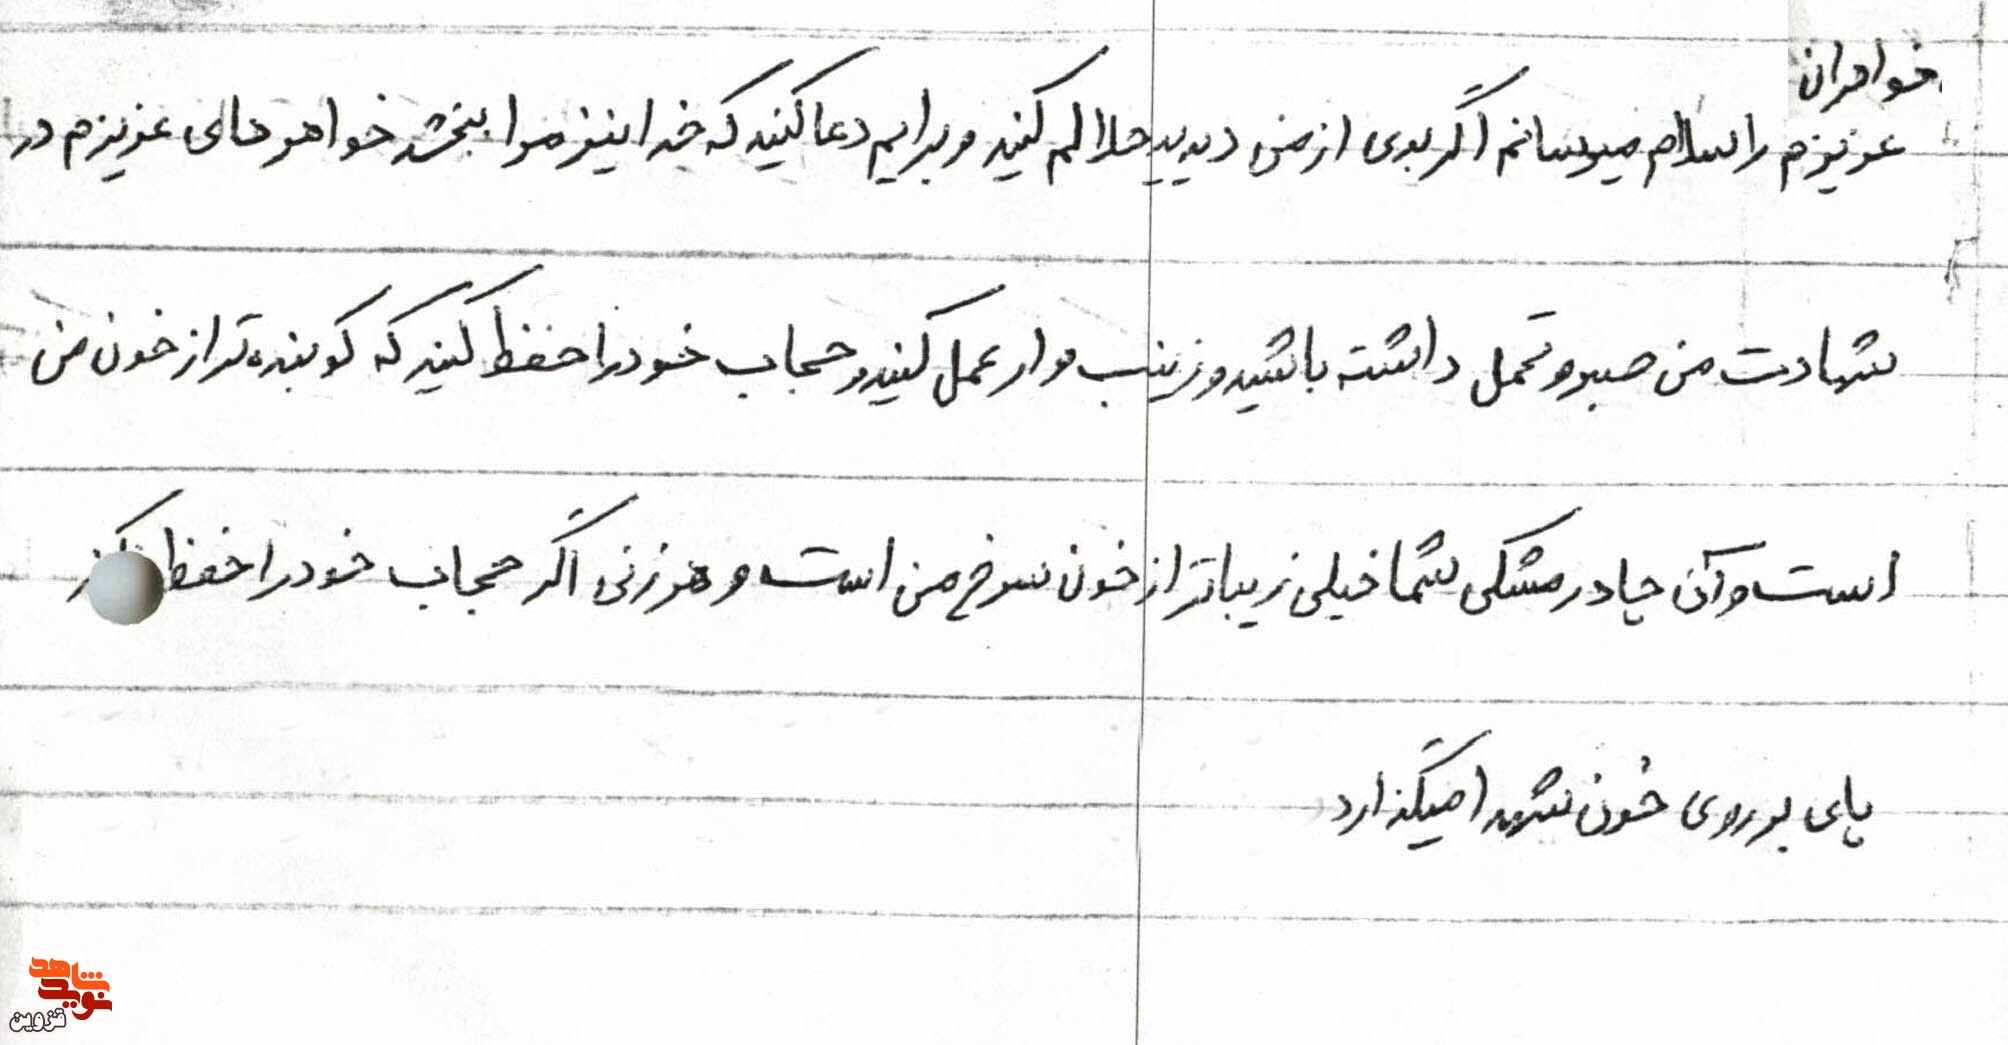 خواهران
عزیزم را سلام میرسانم اگر بدی از من دیدید حلالم کنید و برایم دعا کنید که خدا نیز مرا ببخشد خواهر های عزیزم در
شهادت من صبر و تحمل داشته باشید و زینب وار عمل کنید و حجاب خود را حفظ کنید که کوبنده تر از خون من
است و آن چادر مشکی شما خیلی زیباتر از خون سرخ من است و هر زنی اگر حجاب خود را حفظ
پای بر روی خون شهدا میگذارد
نوید شاهد
قزوین